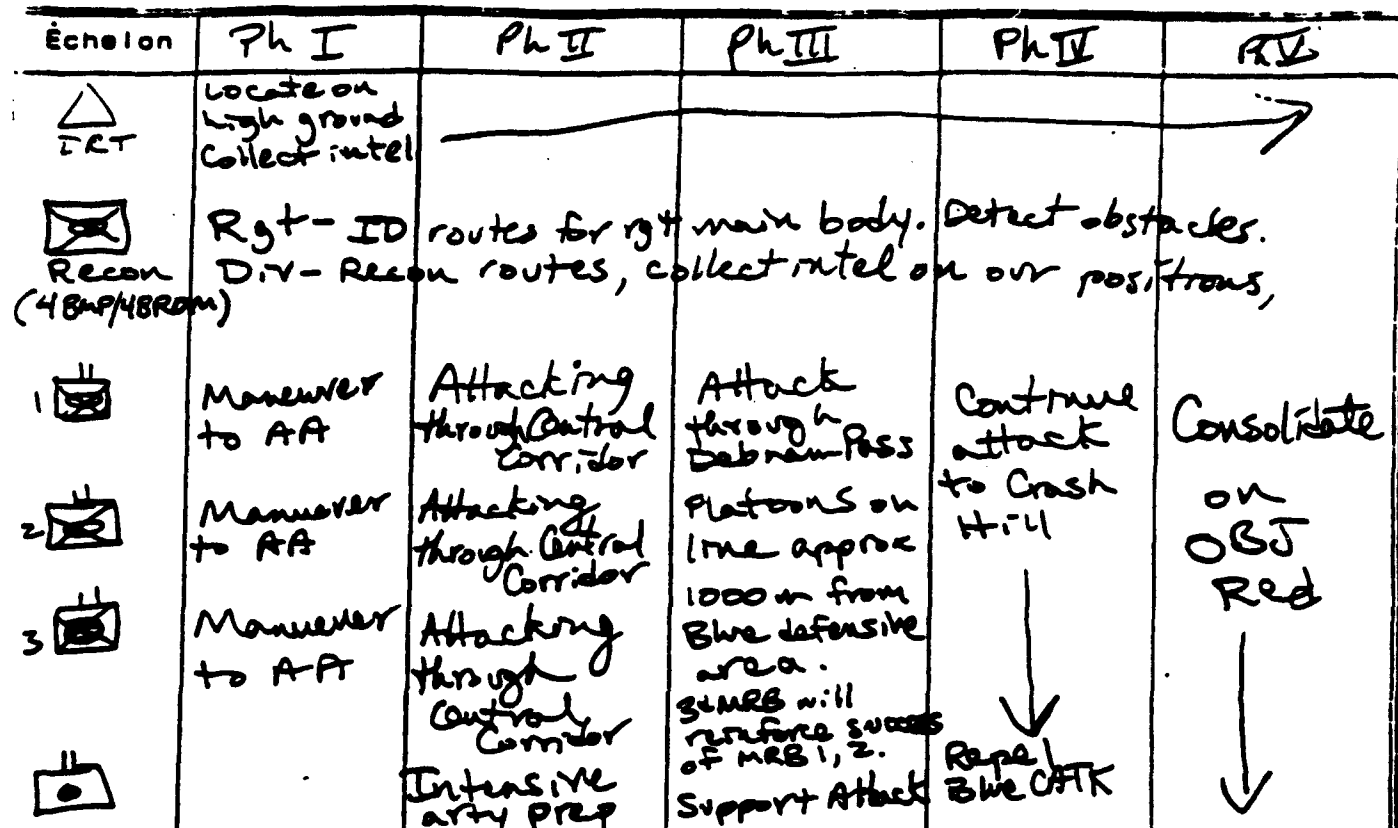 Echelon
Ph I
Ph II
Ph III
Ph IV
Ph V
IRT
Locate on
high ground
Collect intel
Recon
(4 BMP/4BRDM)
Rgt - ID routes for rgt main body. Detect obstacles.
Div - Recon routes, collect intel on our positions,
1
Maneuver
to AA
Attacking
through Central
Corridor
Attack
through
Debnam Pass
Continue
attack
to Crash
Hill
Consolidate
on
OBJ
Red
2
Manuever
to AA
Attacking
through Central
Corridor
Platoons on
line approx
1000 m from
Blue defensive
area.
3
Manuever
to AA
Attacking
through
Central
Corridor
3d MRB will
reinforce success
of MRB 1, 2.
Intensive
arty prep
Support Attack
Repel
Blue CATK